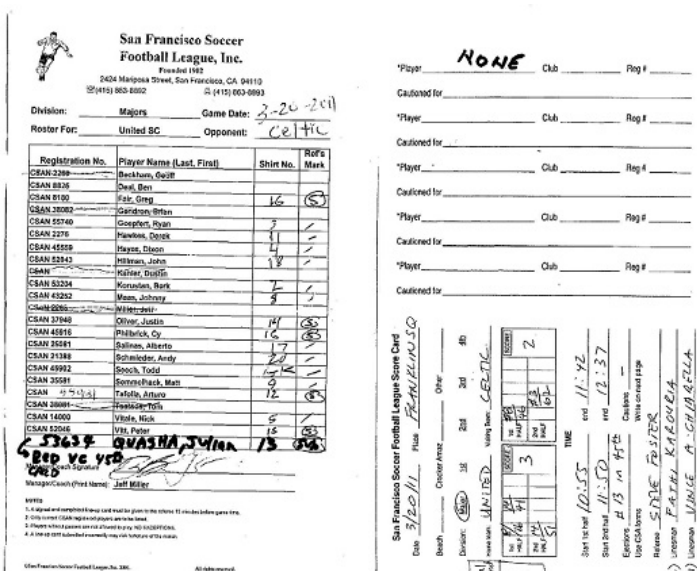 San Francisco Soccer
Football League, Inc.
Founded 1902
2424 Mariposa Street, San Francisco, CA 94110
(415) 863-8892 (415) 863-8893
Division: Majors Game Date: 3-20-2011
Roster For: United SC Opponent: Celtic
Registration No. Player Name (Last, First) Shirt No. Ref's Mark
CSAN 2269 Beckham, Geoff
CSAN 8826 Deal, Ben
CSAN 8180 Fair, Greg 16 (S)
CSAN 38082 Gendron, Brian
CSAN 55740 Goepfert, Ryan 3
CSAN 2276 Hawkes, Derek 11
CSAN 45559 Hayes, Dixon 4
CSAN 52843 Hillman, John 18
CSAN Kahler, Dustin
CSAN 53204 Koruyten, Bark 2
CSAN 43252 Mean, Johnny 8
CSAN 2285 Miller, Jeff
CSAN 37948 Oliver, Justin 14 (S)
CSAN 45816 Philbrick, Cy 16 (S)
CSAN 25581 Salinas, Alberto 17
CSAN 21388 Schmieder, Andy 20
CSAN 45902 Sooch, Todd GK
CSAN 35581 Sommelhack, Matt 9
CSAN Tafolla, Arturo 12 (S)
CSAN 28081 Tom
CSAN 14000 Vitale, Nick 5
CSAN 52046 Vitt, Peter 15 (S)
53634 QUASHA, Julian 13
RED VC 45'
CARD
Manager/Coach Signature
Manager/Coach (Print Name): Jeff Miller
NOTES
1. A signed and completed line-up card must be given to the referee 15 minutes before game time.
2. Only current CSAN registered players are to be listed.
3. Players without passes are not allowed to play. NO EXCEPTIONS.
4. A line-up card submitted incorrectly may risk forfeiture of the match.
San Francisco Soccer Football League, Inc.
All rights reserved.
*Player NONE Club Reg #
Cautioned for
*Player Club Reg #
Cautioned for
*Player Club Reg #
Cautioned for
*Player Club Reg #
Cautioned for
*Player Club Reg #
Cautioned for
San Francisco Soccer Football League Score Card
Date 3/20/11 Place FRANKLIN SQ
Beach Crocker Amaz Other
Division: Major 1st 2nd 3rd 4th
Home team UNITED Visiting Team CELTIC
SCORE 3 SCORE 2
1st HALF 2nd HALF 1st HALF 2nd HALF
TIME
Start 1st half 10:55 end 11:42
Start 2nd half 11:50 end 12:37
Ejections # 13 in 45th Cautions —
Use CSA forms Write on next page
Referee STEVE FOSTER
Linesman FATHI KAROURIA
Linesman VINCE A. CHIARELLA